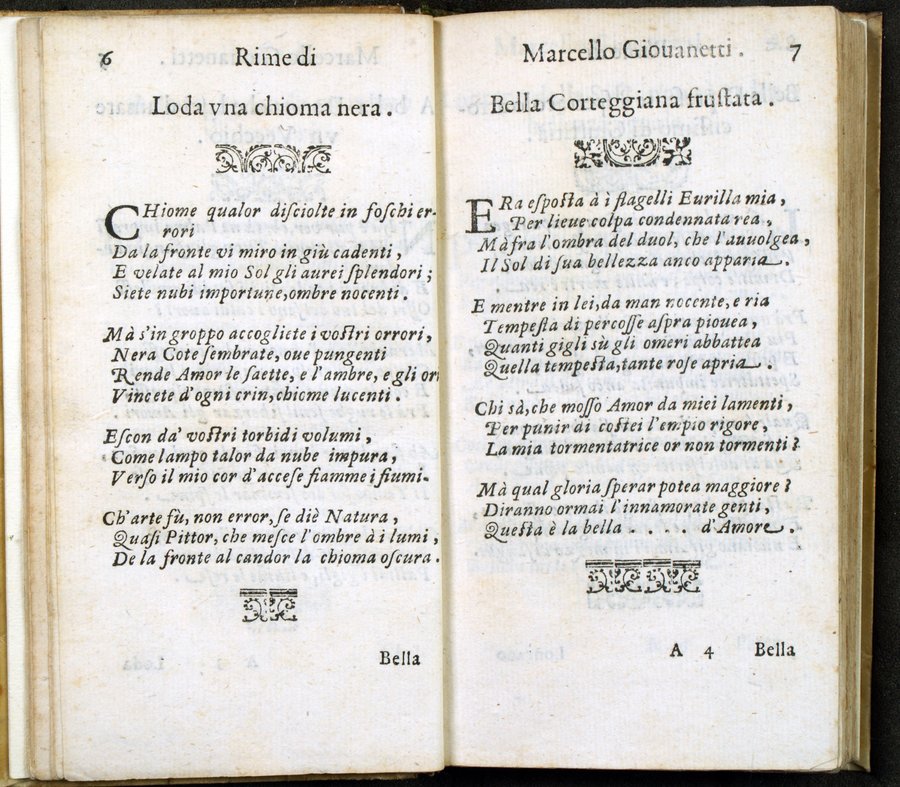 6 Rime di
Loda vna chioma nera.
CHiome qualor diſciolte in foſchi er-
rori
Da la fronte vi miro in giù cadenti,
E velate al mio Sol gli aurei ſplendori;
Siete nubi importune, ombre nocenti.
Mà s'in groppo accogliete i voſtri orrori,
Nera Cote ſembrate, oue pungenti
Rende Amor le ſaette, e l'ambre, e gli ori
Vincete d'ogni crin, chiome lucenti.
Eſcon da' voſtri torbidi volumi,
Come lampo talor da nube impura,
Verſo il mio cor d'acceſe fiamme i fiumi.
Ch'arte fù, non error, ſe diè Natura,
Quaſi Pittor, che meſce l'ombre à i lumi,
De la fronte al candor la chioma oſcura.
Bella
Marcello Giouanetti. 7
Bella Corteggiana fruſtata.
ERa eſpoſta à i flagelli Eurilla mia,
Per lieue colpa condennata rea,
Mà fra l'ombra del duol, che l'auuolgea,
Il Sol di ſua bellezza anco apparia.
E mentre in lei, da man nocente, e ria
Tempeſta di percoſſe aſpra piouea,
Quanti gigli sù gli omeri abbattea
Quella tempeſta, tante roſe apria.
Chi sà, che moſſo Amor da miei lamenti,
Per punir di coſtei l'empio rigore,
La mia tormentatrice or non tormenti?
Mà qual gloria ſperar potea maggiore?
Diranno ormai l'innamorate genti,
Queſta è la bella . . . d'Amore.
A 4 Bella